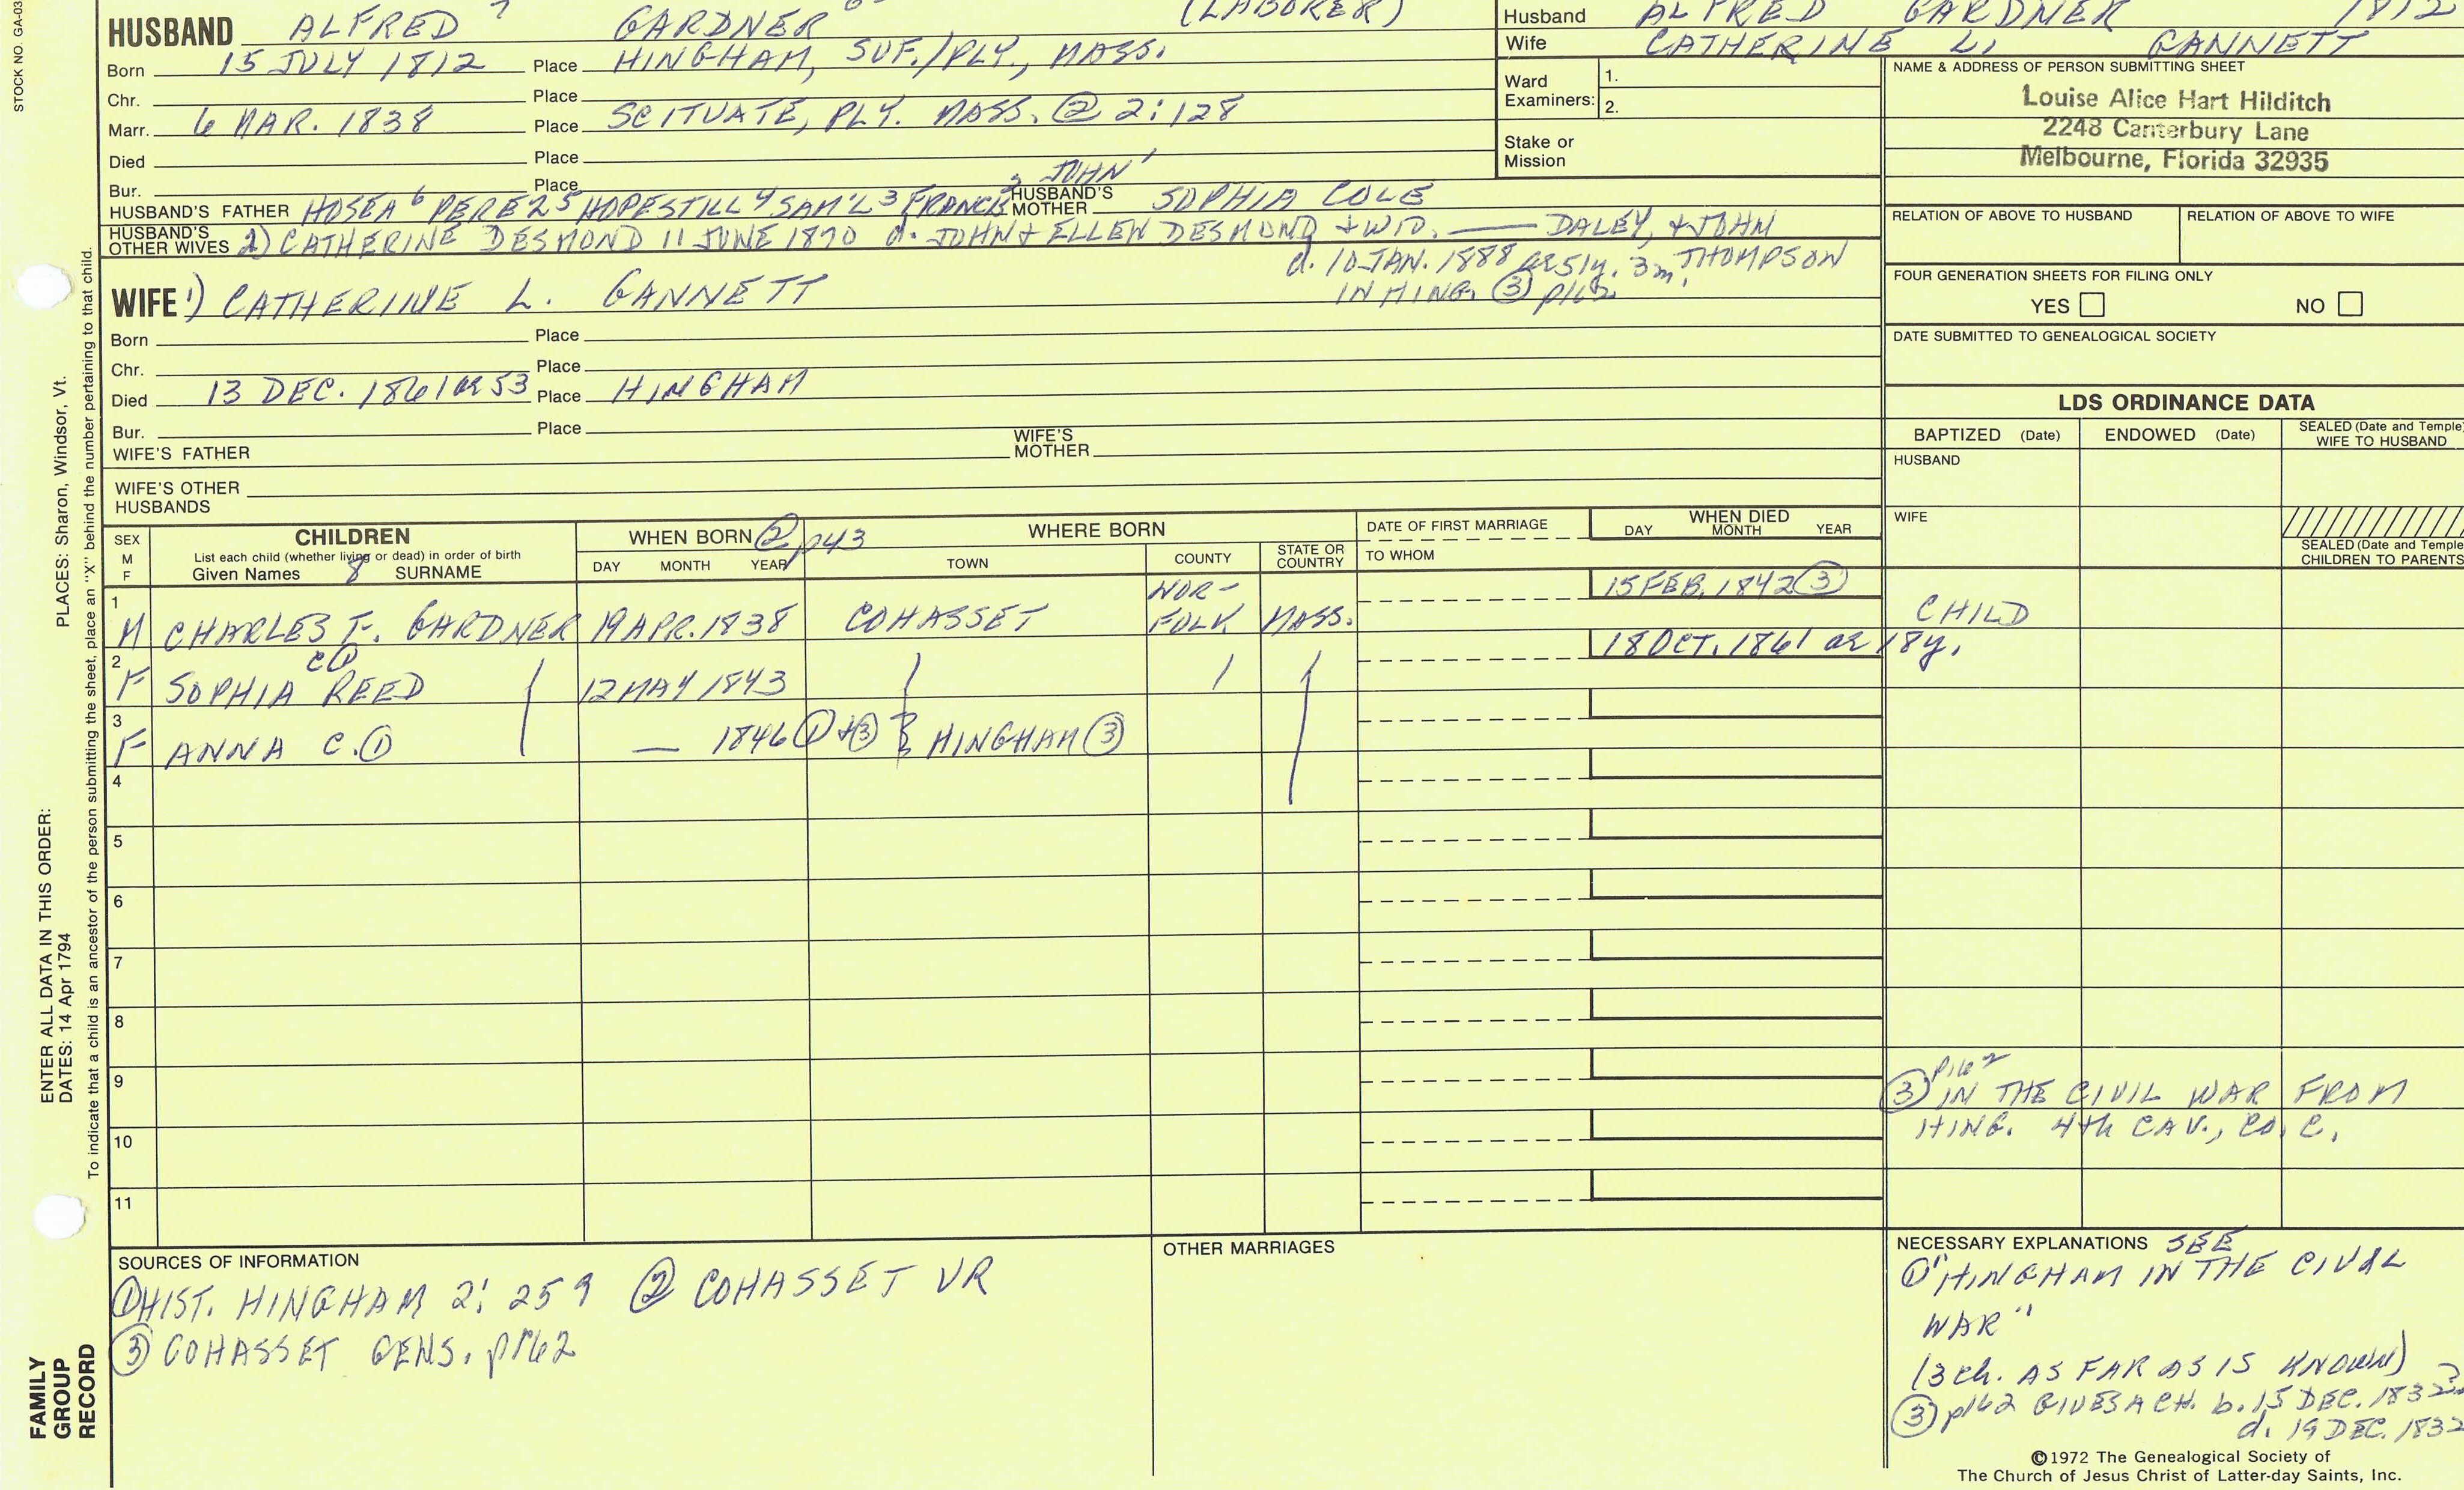 STOCK NO. GA-03
HUSBAND ALFRED 7 GARDNER (LABORER)
Born 15 JULY 1812 Place HINGHAM, SUF./PLY., MASS.
Chr. Place
Marr. 6 MAR. 1838 Place SCITUATE, PLY. MASS. ② 2:128
Died Place
Bur. Place
HUSBAND'S FATHER HOSEA 6 PEREZ 5 HOPESTILL 4 SAM'L 3 FRANCIS 2 JOHN 1 HUSBAND'S MOTHER SOPHIA COLE
HUSBAND'S OTHER WIVES 2) CATHERINE DESMOND 11 JUNE 1870 d. JOHN & ELLEN DESMOND & WID. — DALEY, & JOHN THOMPSON
d. 10 JAN. 1888 ae 51y. 3m.
IN HING. ③ p162
WIFE 1) CATHERINE L. GANNETT
Born Place
Chr. Place
Died 13 DEC. 1861 ae 53 Place HINGHAM
Bur. Place
WIFE'S FATHER WIFE'S MOTHER
WIFE'S OTHER HUSBANDS
Husband ALFRED GARDNER 1812
Wife CATHERINE L. GANNETT
Ward Examiners: 1.
2.
Stake or Mission
NAME & ADDRESS OF PERSON SUBMITTING SHEET
Louise Alice Hart Hilditch
2248 Canterbury Lane
Melbourne, Florida 32935
RELATION OF ABOVE TO HUSBAND RELATION OF ABOVE TO WIFE
FOUR GENERATION SHEETS FOR FILING ONLY
YES NO
DATE SUBMITTED TO GENEALOGICAL SOCIETY
LDS ORDINANCE DATA
BAPTIZED (Date) ENDOWED (Date) SEALED (Date and Temple) WIFE TO HUSBAND
HUSBAND
WIFE
SEALED (Date and Temple) CHILDREN TO PARENTS
SEX M F
CHILDREN
List each child (whether living or dead) in order of birth
Given Names 8 SURNAME
WHEN BORN ② p43
DAY MONTH YEAR
WHERE BORN
TOWN COUNTY STATE OR COUNTRY
DATE OF FIRST MARRIAGE
TO WHOM
WHEN DIED
DAY MONTH YEAR
1 M CHARLES F. GARDNER 19 APR. 1838 COHASSET NOR-FOLK MASS. 15 FEB. 1842 ③ CHILD
2 F SOPHIA REED C ① 12 MAY 1843 18 OCT. 1861 ae 18y.
3 F ANNA C. ① — 1846 ① + ③ HINGHAM ③
4
5
6
7
8
9
10
11
③ p162 IN THE CIVIL WAR FROM
HING. 4th CAV., CO. C.
SOURCES OF INFORMATION
① HIST. HINGHAM 2: 259 ② COHASSET VR
③ COHASSET GENS. p162
OTHER MARRIAGES
NECESSARY EXPLANATIONS SEE
① "HINGHAM IN THE CIVAL
WAR"
(3 ch. AS FAR AS IS KNOWN)
③ p162 GIVES A CH. b. 15 DEC. 1832
d. 19 DEC. 1832
©1972 The Genealogical Society of
The Church of Jesus Christ of Latter-day Saints, Inc.
ENTER ALL DATA IN THIS ORDER:
DATES: 14 Apr 1794
PLACES: Sharon, Windsor, Vt.
To indicate that a child is an ancestor of the person submitting the sheet, place an "X" behind the number pertaining to that child.
FAMILY
GROUP
RECORD